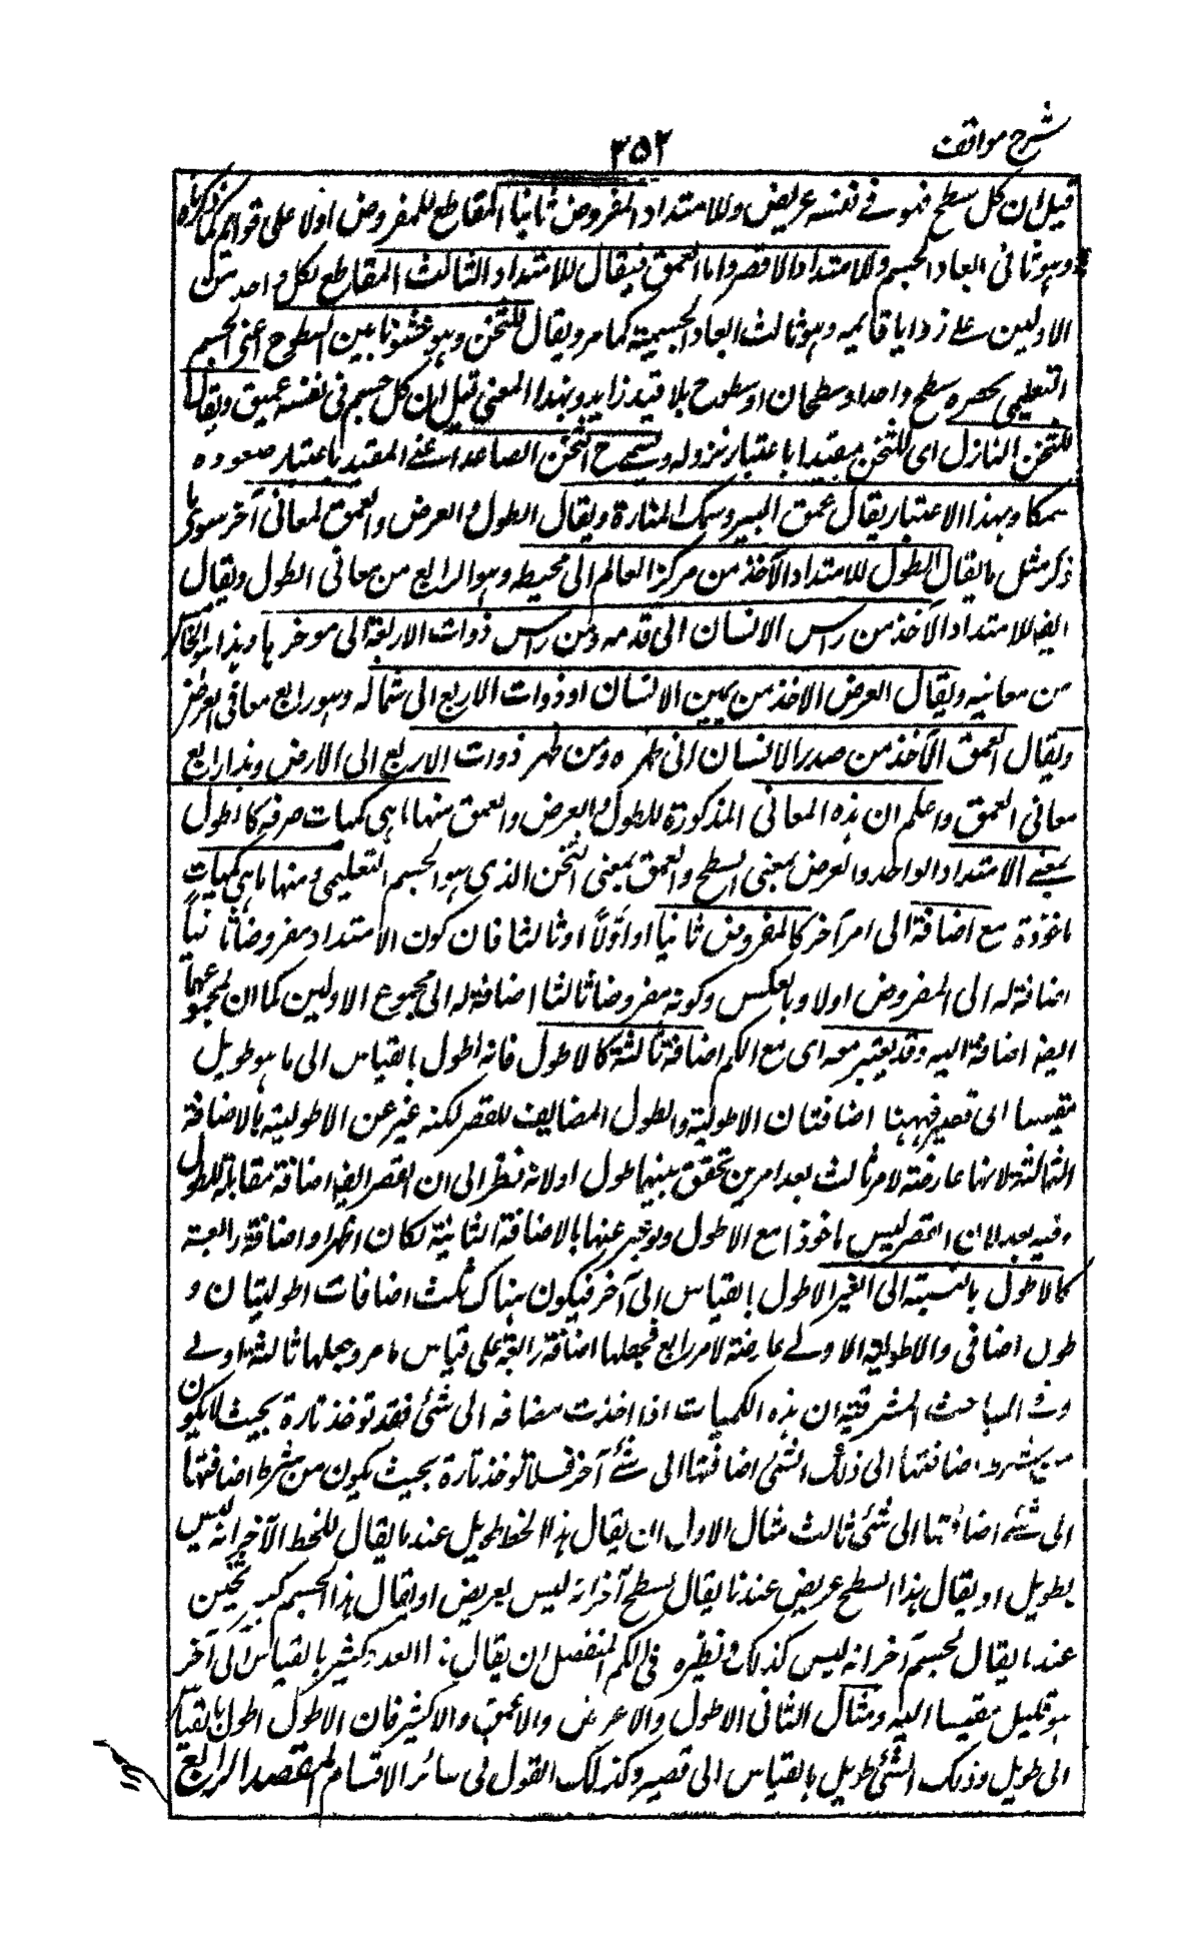 شرح مواقف
۳۵۲
قيل ان كل سطح فهو فے نفسه عريض وللامتداد المفروض ثانيا المقاطع للمفروض اولا على قوائم كما ذكرناه
وهو ثانى ابعاد الجسم وللامتداد الاقصر واما العمق فيقال للامتداد الثالث المقاطع لكل واحد من
الاولين على زوايا قايمه وهو ثالث ابعاد الجسمية كما مر ويقال للثخن وهو حشو ما بين السطوح اعنى الجسم
التعليمى يحصره سطح واحد او سطحان او سطوح بلا قيد زايد وبهذا المعنى قيل ان كل جسم فى نفسه عميق ويقال
للثخن النازل اى للثخن مقيدا باعتبار نزوله ويسمى ح الثخن الصاعد اعنے المقيد باعتبار صعوده
سمكا وبهذا الاعتبار يقال عمق البير وسمك المنارة ويقال الطول والعرض والعمق لمعانى آخر سوى ما
ذكر مثل ما يقال الطول للامتداد الآخذ من مركز العالم الى محيطه وهو الرابع من معانى الطول ويقال
ايضا للامتداد الآخذ من راس الانسان الى قدمه ومن راس ذوات الاربعة الى موخرها وهذا هو الخامس
من معانيه ويقال العرض الاخذ من يمين الانسان او ذوات الاربع الى شماله وهو رابع معانى العرض
ويقال العمق الآخذ من صدر الانسان الى ظهره ومن ظهر ذوات الاربع الى الارض وهذا رابع
معانى العمق واعلم ان هذه المعانى المذكورة للطول والعرض والعمق منها ما هى كميات صرفه كالطول
بمعنے الامتداد الواحد والعرض بمعنى السطح والعمق بمعنى الثخن الذى هو الجسم التعليمى ومنها ما هى كميات
ماخوذة مع اضافة الى امر آخر كالمفروض ثانيا او اولًا او ثالثا فان كون الامتداد مفروضا ثانيًا
اضافة له الى المفروض اولا وبالعكس وكونه مفروضا ثالثا اضافة له الى مجموع الاولين كما ان لمجموعهما
ايضا اضافة اليه وقد يعتبر معه اى مع الكم اضافة ثالثة كالاطول فانه اطول بالقياس الى ما هو طويل
مقيسا الى قصير فههنا اضافتان الاطولية والطول المضايف للقصر لكنه عبر عن الاطولية بالاضافة
الثالثة لانها عارضة لامر ثالث بعد امرين تحقق بينهما طول اولا نظر الى ان القصر ايضا اضافة مقابلة للطول
وفيه بعد لان القصر ليس ماخوذا مع الاطول ولو عبر عنها بالاضافة الثانية لكان اظهر او اضافة رابعة
كالاطول بالنسبة الى الغير الاطول بالقياس الى آخر فيكون هناك ثلث اضافات اطوليتان و
طول اضافى والاطولية الاولے عارضة لامر رابع فجعلها اضافة رابعة على قياس ما مر وجعلها ثالثة اولے
وفے المباحث المشرقية ان هذه الكميات اذا اخذت مضافه الى شئ فقد توخذ تارة بحيث لا يكون
من شرط اضافتها الى ذلك الشئ اضافتها الى شئے آخر وقد توخذ تارة بحيث يكون من شرط اضافتها
الى شئے اضافتها الى شئ ثالث مثال الاول ان يقال هذا الخط طويل عند ما يقال للخط الآخر انه ليس
بطويل او يقال هذا السطح عريض عندنا يقال لسطح آخر انه ليس بعريض او يقال هذا الجسم كبير ثخين
عند ما يقال لجسم آخر انه ليس كذلك ونظيره فى الكم المنفصل ان يقال هذا العدد كثير بالقياس الى آخر
هو قليل مقيسا اليه ومثال الثانى الاطول والاعرض والاعمق والاكثر فان الاطول اطول بالقياس
الى طويل وذلك الشئ طويل بالقياس الى قصير وكذلك القول فى سائر الاقسام المقصد الرابع